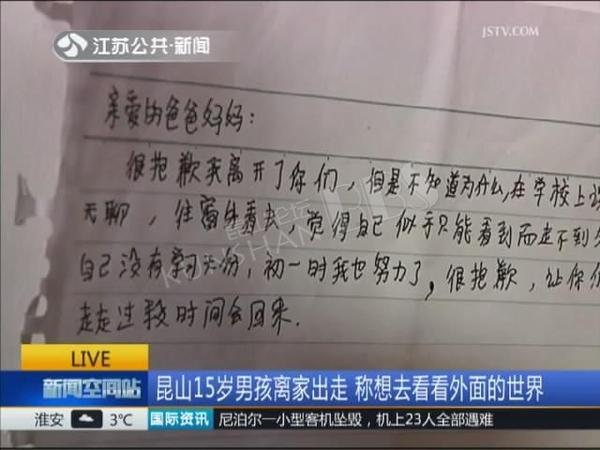 江苏公共·新闻
JSTV.COM
亲爱的爸爸妈妈:
很抱歉我离开了你们,但是不知道为什么,在学校上课
无聊,往窗外看去,觉得自己似乎只能看到而走不到外
自己没有学习天份,初一时我也努力了,很抱歉,让你们
走走过段时间会回来.
KUNSHAN BBS
LIVE
新闻空间站
昆山15岁男孩离家出走 称想去看看外面的世界
淮安 3℃ 国际资讯 尼泊尔一小型客机坠毁,机上23人全部遇难